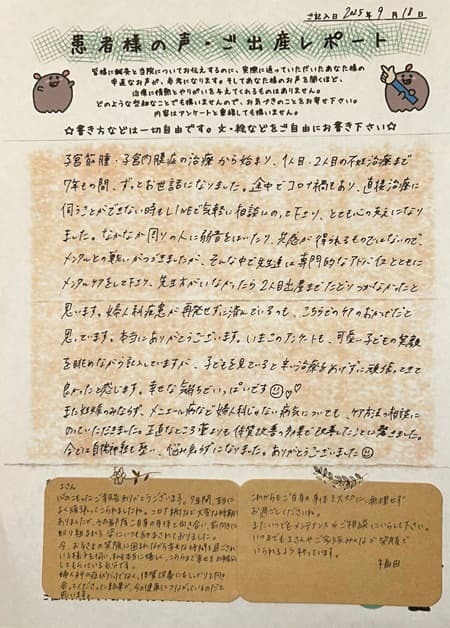 ご記入日 2025年 9月 18日
患者様の声・ご出産レポート
皆様に鍼灸と当院についてお伝えするのに、実際に通っていただいたあなた様の
率直なお声が、一番参考になります。そしてあなた様のお声を聞くほど、
治療に情熱とやりがいを与えてくれるものはありません。
どのような些細なことでも構いませんので、お気づきのことをお寄せ下さい。
内容はアンケートと重複しても構いません。
☆書き方などは一切自由です。文・絵などをご自由にお書き下さい☆
子宮筋腫・子宮内膜症の治療から始まり、1人目・2人目の不妊治療まで
7年もの間、ずっとお世話になりました。途中でコロナ禍もあり、直接治療に
伺うことができない時もLINEで気軽に相談にのって下さり、とても心の支えになり
ました。なかなか周りの人に弱音をはいたり、共感が得られるものではないので、
メンタルとの戦いがつづきましたが、そんな中で先生達は専門的なアドバイスとともに
メンタルケアをして下さり、先生方がいなかったら2人目出産までたどりつかなかったと
思います。婦人科疾患が再発せずに済んでいるのも、こちらでのケアのおかげだと
思っています。本当にありがとうございます。いまこのアンケートも、可愛い子どもの笑顔
を眺めながら記入していますが、子どもを見ていると辛い治療をあきらめずに頑張ってきて
良かったと感じます。幸せな気持ちでいっぱいです
また妊娠のみならず、メニエール病など婦人科じゃない病気についても、ケア方法の相談に
のっていただきました。正直なところ薬よりも体質改善の効果で改善したことに驚きました。
今では自律神経も整い、悩み知らずになりました。ありがとうございました
心のこもったご報告ありがとうございます。7年間、本当に
よく頑張ってこられましたね。コロナ禍など大変な時期も
ありましたが、その都度ご自身の身体と向き合い、前向きに
今、お子さまの笑顔に囲まれながら幸せな時間を過ごされ
婦人科の症状だけではなく、体質改善にもしっかりと向き
思います。
これからもご自身の身体を大切に、無理せず
お過ごしくださいね。
またいつでもメンテナンスやご相談にいらして下さい。
いられるよう祈っています。